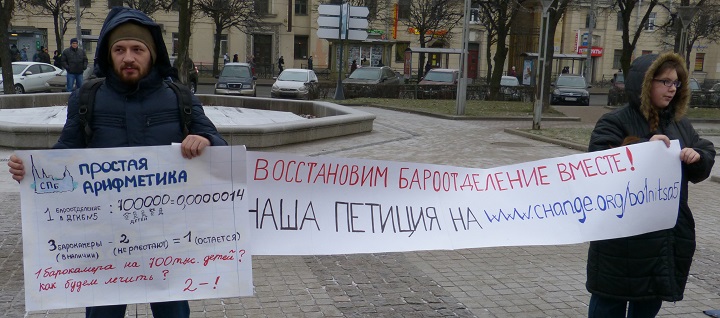 СПБ
ПРОСТАЯ
АРИФМЕТИКА
1 БАРООТДЕЛЕНИЕ : 700000=0,0000014
В ДГКБ№5 ДЕТЕЙ
3 БАРОКАМЕРЫ - 2 = 1 (ОСТАЕТСЯ)
(В НАЛИЧИИ) (НЕ РАБОТАЮТ)
1 барокамера на 700 тыс. детей?
как будем лечить? 2-!
ВОССТАНОВИМ БАРООТДЕЛЕНИЕ ВМЕСТЕ!
НАША ПЕТИЦИЯ НА www.change.org/bolnitsa5